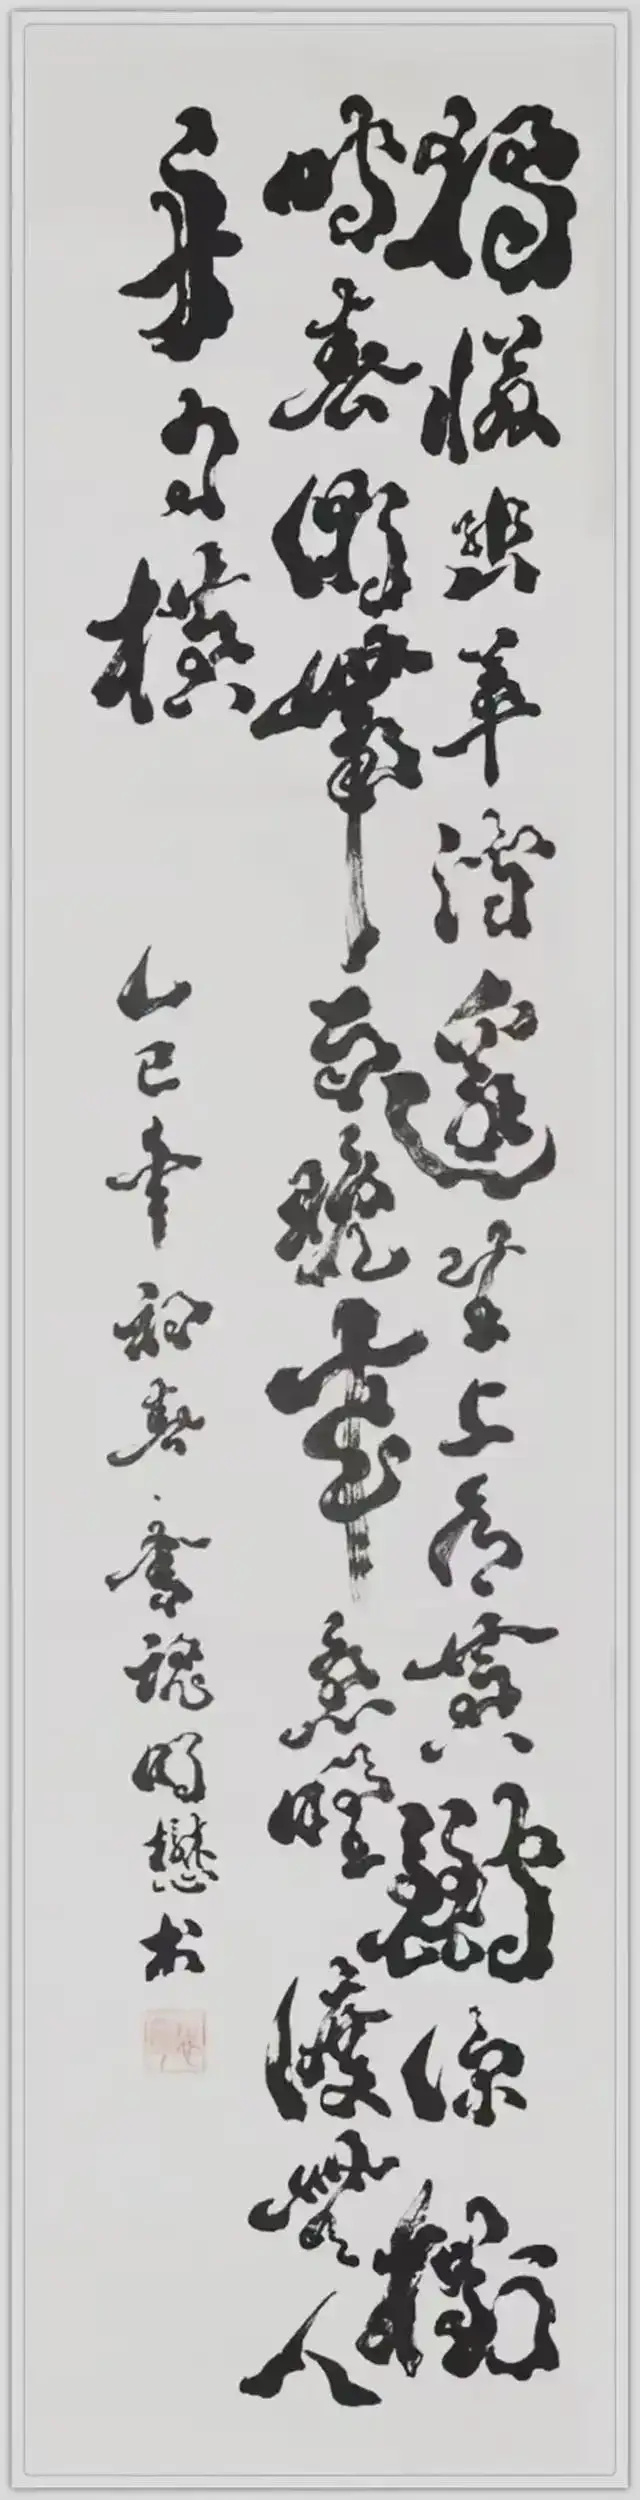 獨憐幽草澗邊生上有黃鸝深樹
鳴春潮帶雨晚來急野渡無人
舟自橫
乙巳年初春明懋书